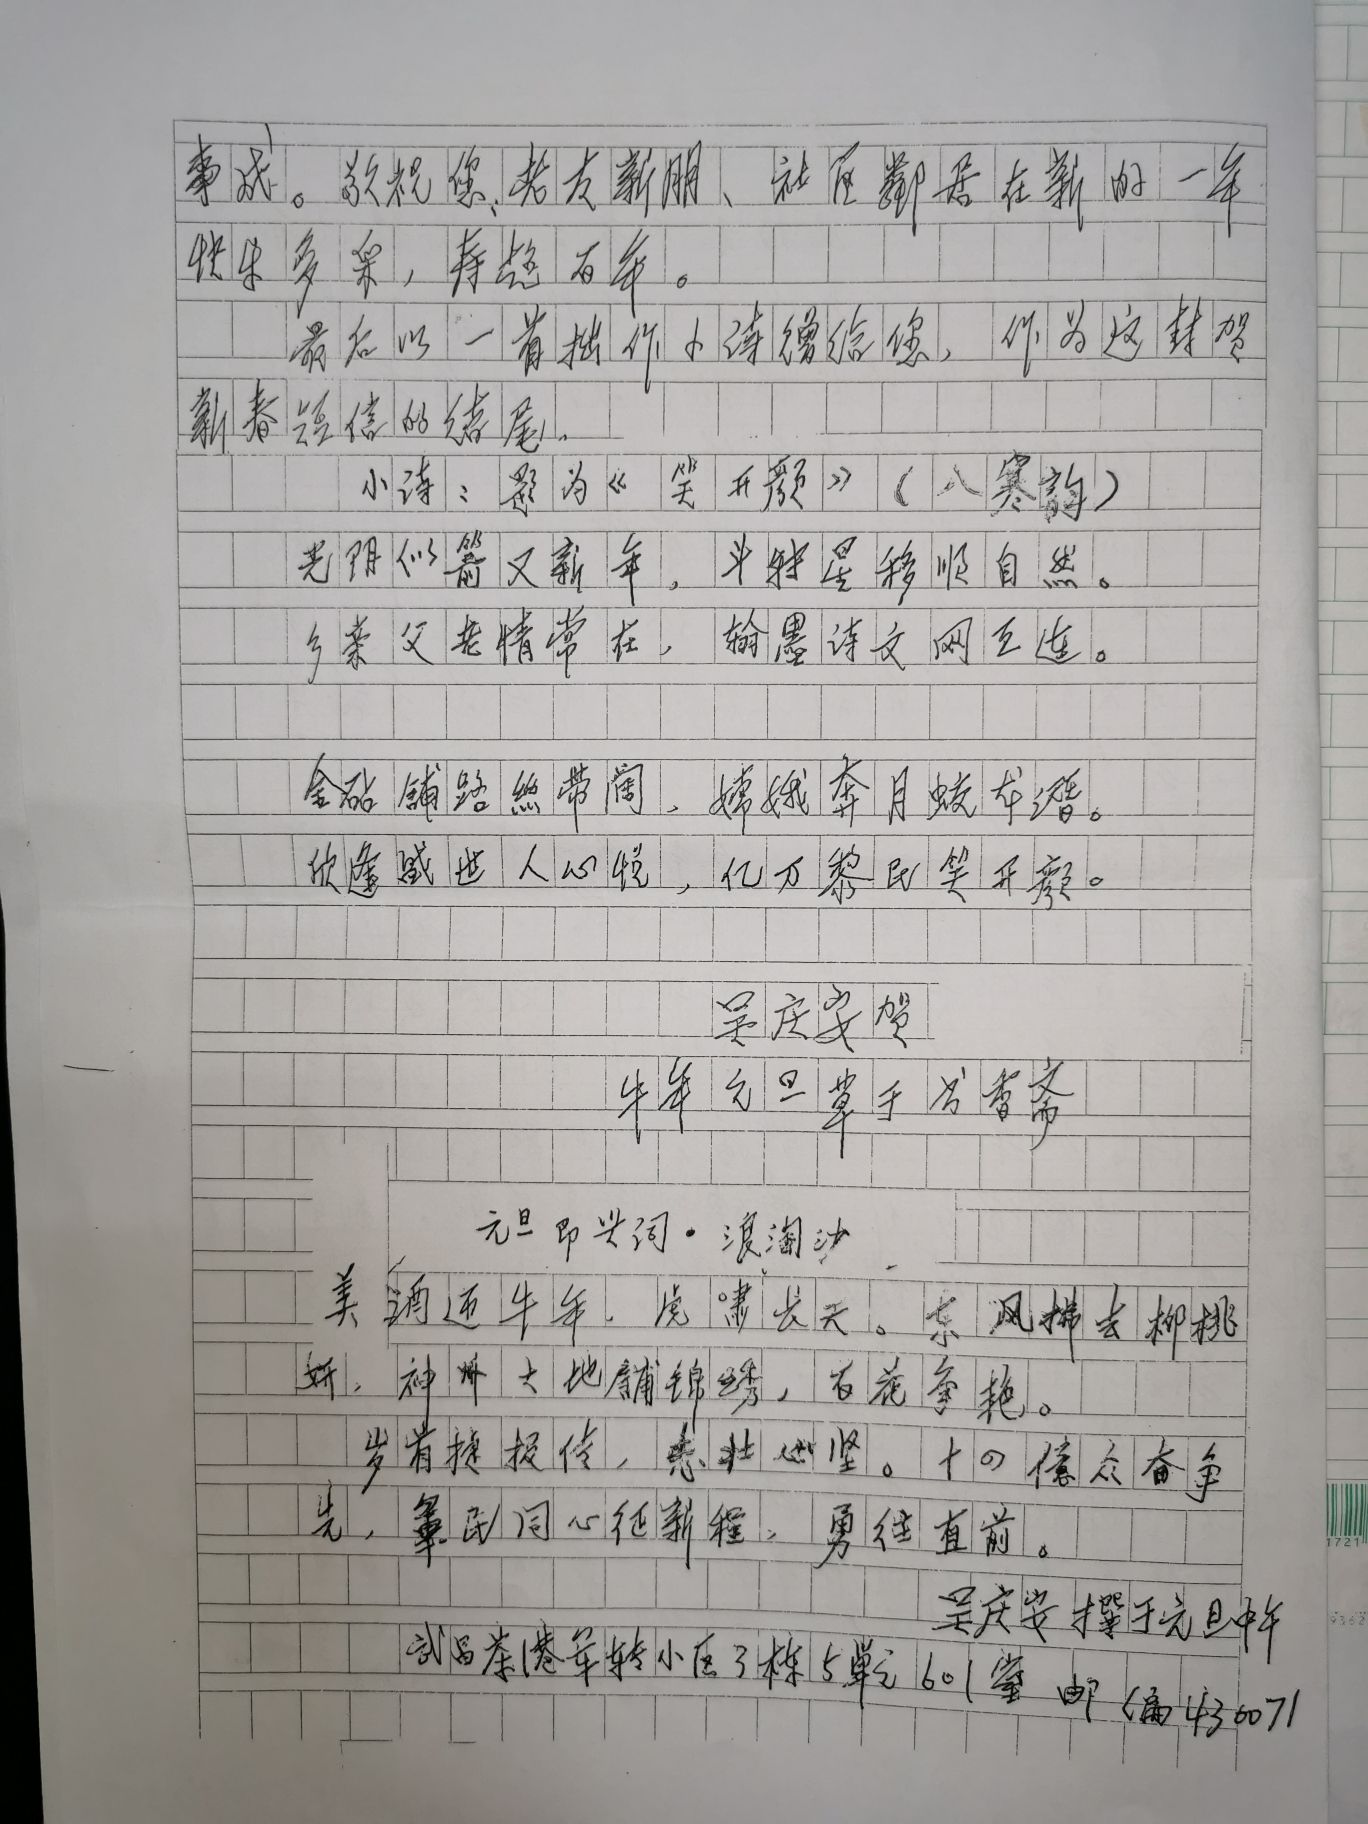 事成。敬祝您、老友新朋、社区鄰居在新的一年
快乐多采，寿越百年。
最后以一首拙作小诗赠给您，作为这封贺
新春短信的结尾。
小诗：题为《笑开颜》（八寒韵）
光阴似箭又新年，斗转星移顺自然。
乡亲父老情常在，翰墨诗文网互连。
金砖铺路丝带阔，嫦娥奔月蛟龙潜。
欣逢盛世人心悦，亿万黎民笑开颜。
吴庆安贺
牛年元旦草于书香斋
元旦即兴词·浪淘沙
美酒迎牛年，虎啸长天。东风拂去柳桃
妍，神州大地舖锦绣，百花争艳。
岁首捷报传，志壮心坚。十四億众奋争
先，羣民同心征新程，勇往直前。
吴庆安撰于元旦中午
武昌茶港军转小区3栋5單元601室 邮编430071
1721